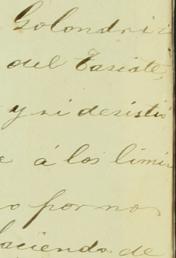 Golondri
del Tasiate,
y si desistió
á los limi
o por nos
haciendo de